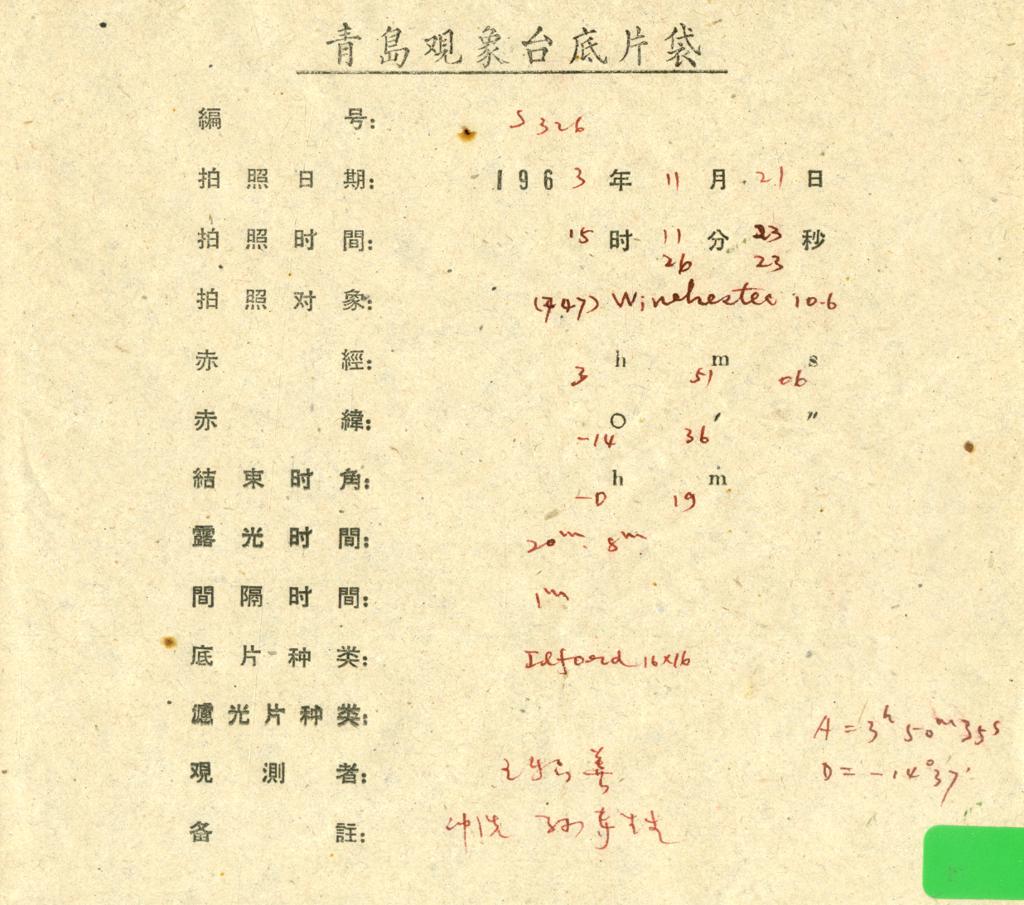 青島观象台底片袋
編 号: S 326
拍照日期: 1963年 11月 21日
拍照时間: 15时 11分 23秒
26 23
拍照对象: (747) Winchester 10.6
赤 經: 3h 51m 06s
赤 緯: -14° 36′ ″
結束时角: -0h 19m
露光时間: 20m. 8m
間隔时間: 1m
底片种类: Ilford 16×16
濾光片种类:
A = 3h 50m 35s
观測者: 王 善
D = -14°37'
备 註: 冲洗